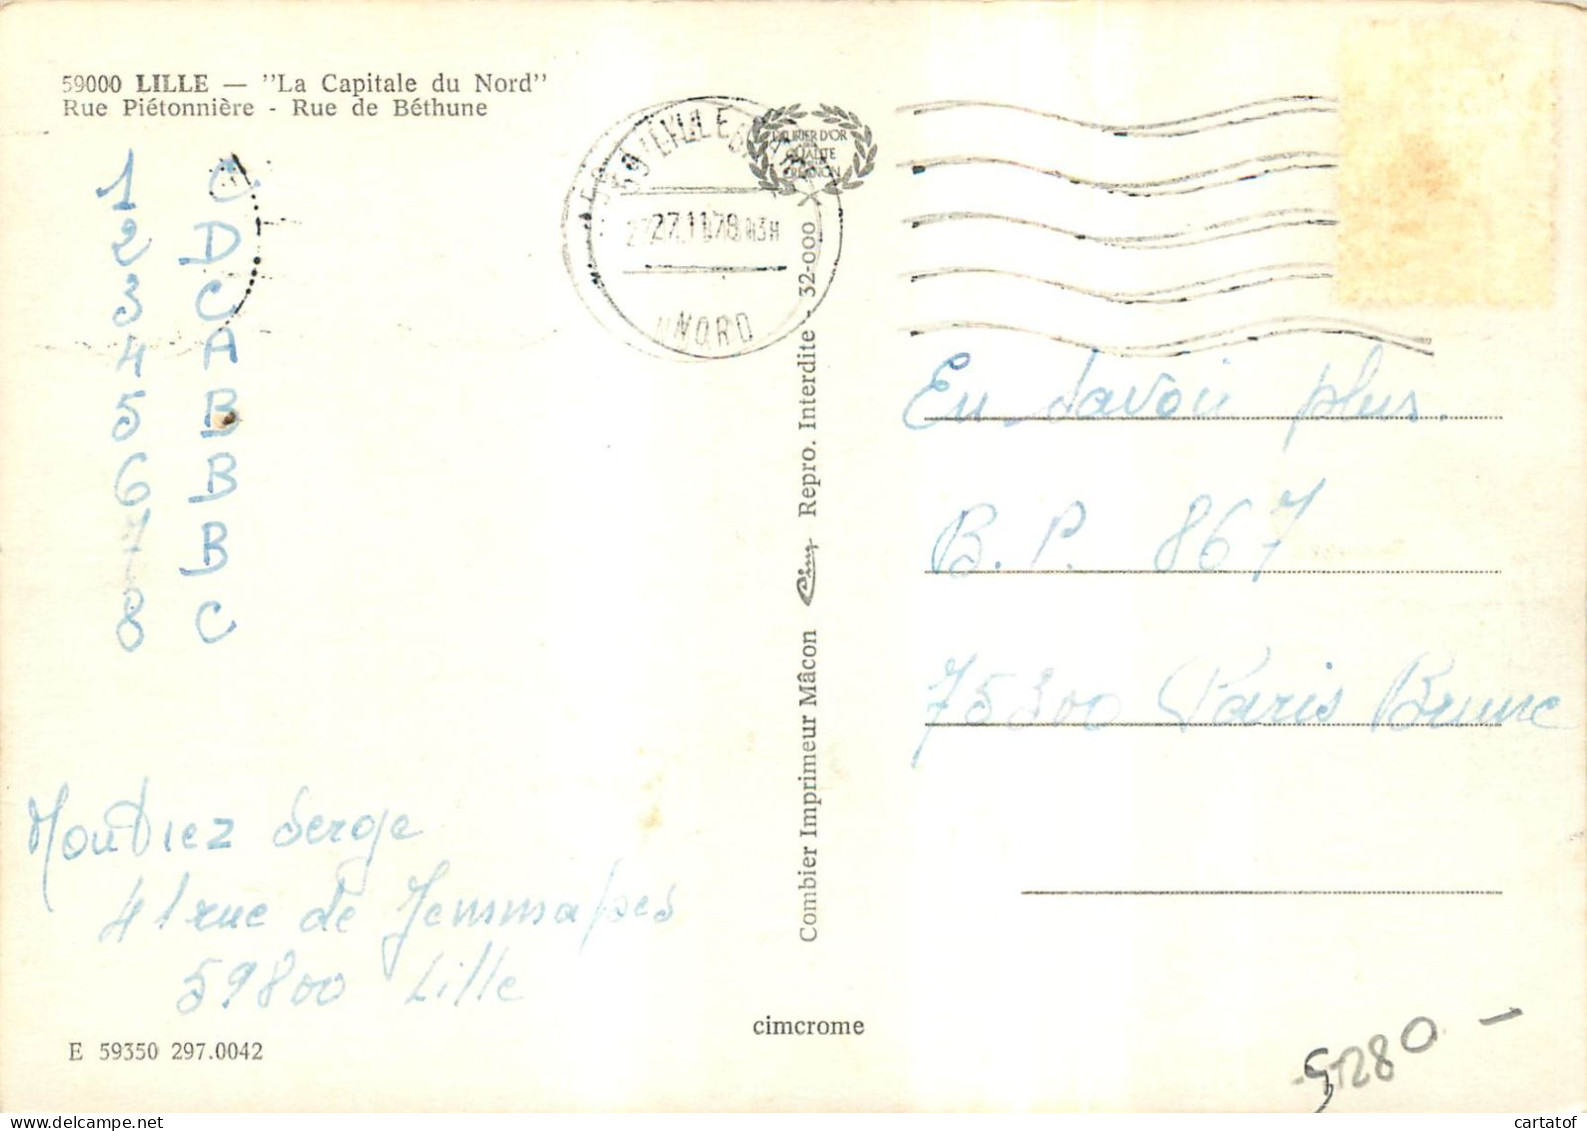 59000 LILLE — "La Capitale du Nord"
Rue Piétonnière - Rue de Béthune
1 C
2 D
3 C
4 A
5 B
6 B
7 B
8 C
Serge
41 rue de Jemmapes
59800 Lille
E 59350 297.0042
59 LILLE
27.11.78
NORD
LAURIER D'OR
QUALITE
Combier Imprimeur Mâcon Cim Repro. Interdite - 32-000
cimcrome
En savoir plus.
B.P. 867
75300 Paris Brune
cartatof